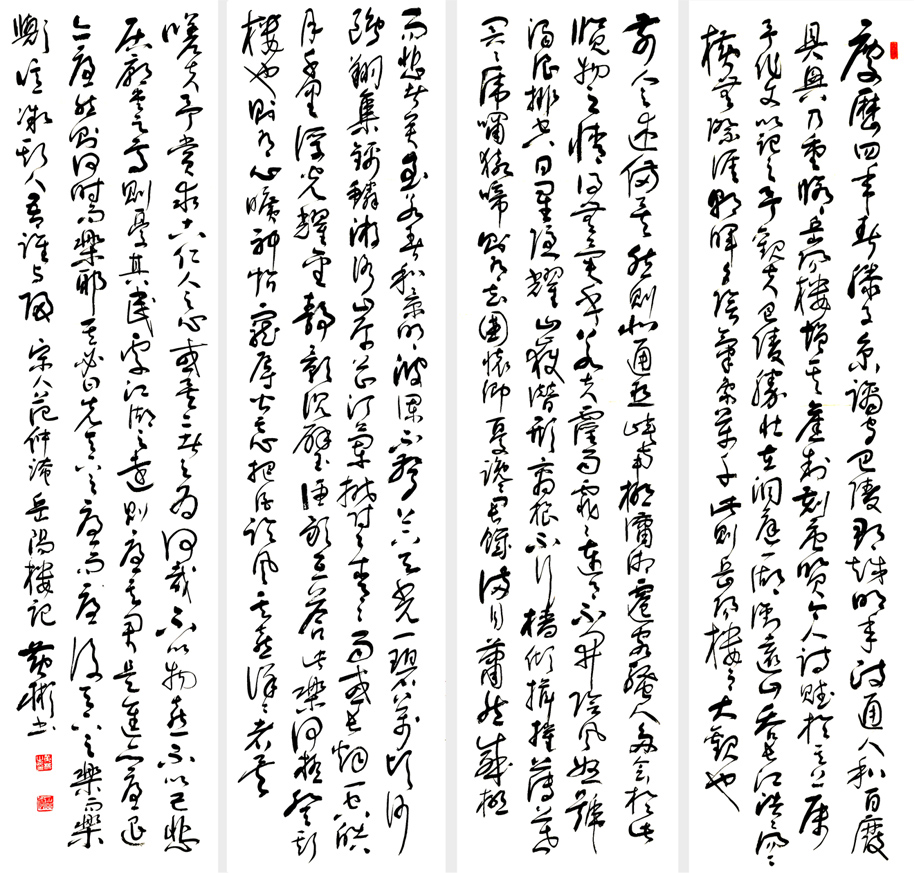 慶曆四年春滕子京謫守巴陵郡越明年政通人和百廢
具興乃重修岳陽樓增其舊制刻唐賢今人詩賦於其上屬
予作文以記之予觀夫巴陵勝狀在洞庭一湖銜遠山吞長江浩浩湯湯
橫無際涯朝暉夕陰氣象萬千此則岳陽樓之大觀也
前人之述備矣然則北通巫峽南極瀟湘遷客騷人多會於此
覽物之情得無異乎若夫霪雨霏霏連月不開陰風怒號
濁浪排空日星隱耀山嶽潛形商旅不行檣傾楫摧薄暮
冥冥虎嘯猿啼則有去國懷鄉憂讒畏譏滿目蕭然感極
而悲者矣至若春和景明波瀾不驚上下天光一碧萬頃沙
鷗翔集錦鱗游泳岸芷汀蘭郁郁青青而或長煙一空皓
月千里浮光耀金靜影沉璧漁歌互答此樂何極登斯
樓也則有心曠神怡寵辱皆忘把酒臨風其喜洋洋者矣
嗟夫予嘗求古仁人之心或異二者之為何哉不以物喜不以己悲
居廟堂之高則憂其民處江湖之遠則憂其君是進亦憂退
亦憂然則何時而樂耶其必曰先天下之憂而憂後天下之樂而樂
歟噫微斯人吾誰與歸 宋人范仲淹岳陽樓記 彬書